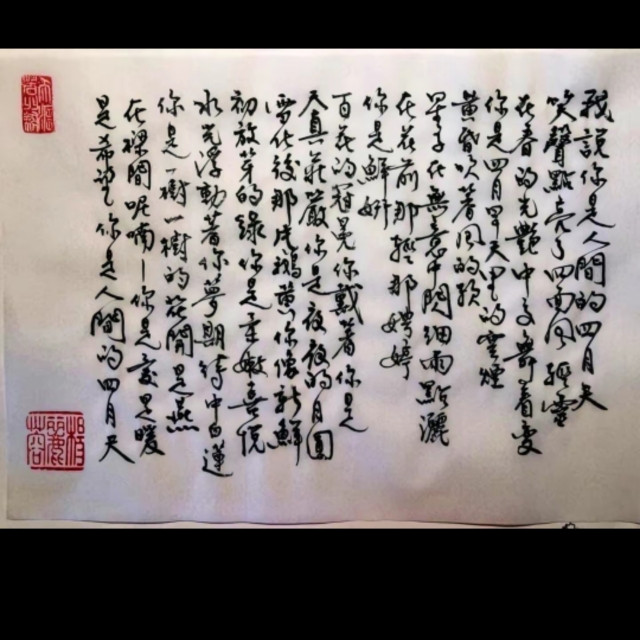 我說你是人間的四月天
笑聲點亮了四面風輕靈
在春的光艷中交舞着變
你是四月早天里的雲煙
黃昏吹着風的軟
星子在無意中閃細雨點灑
在花前那輕那娉婷
你是鮮妍
百花的冠冕你戴着你是
天真莊嚴你是夜夜的月圓
雪化後那片鵝黃你像新鮮
初放芽的綠你是柔嫩喜悅
水光浮動着你夢期待中白蓮
你是一樹一樹的花開是燕
在樑間呢喃—你是愛是暖
是希望你是人間的四月天